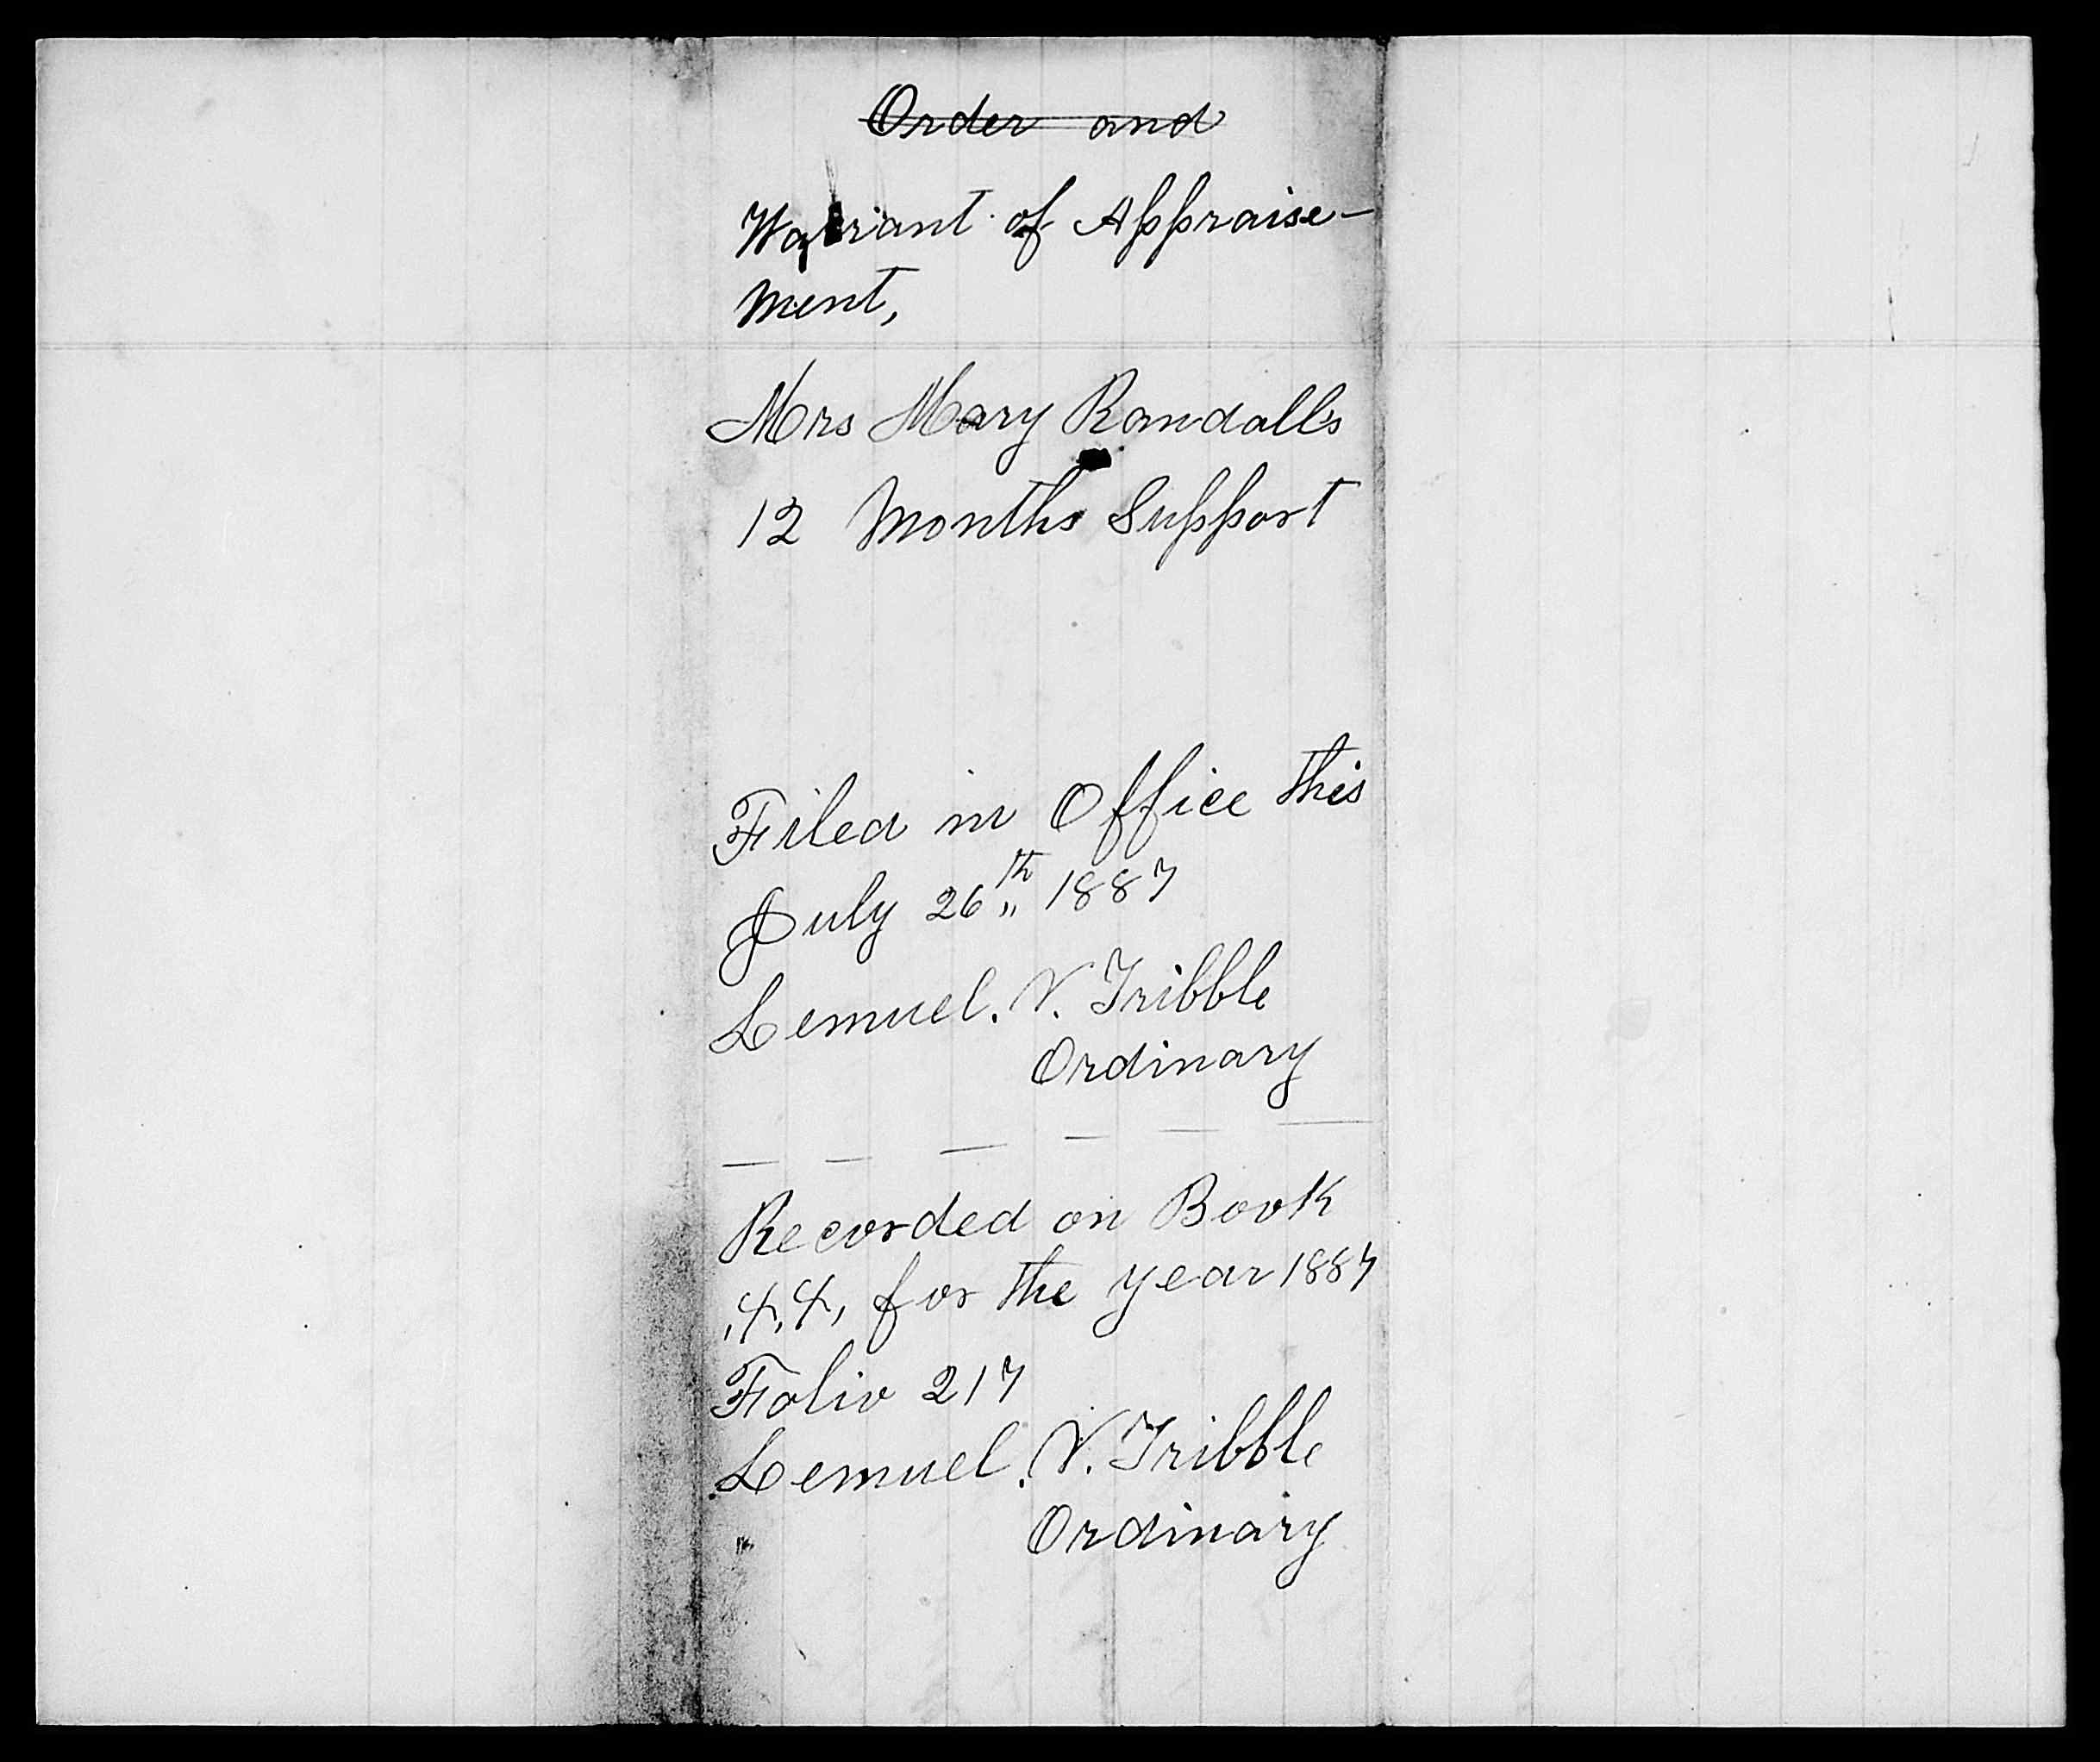 Order and
Warrant of Appraise-
ment,
Mrs Mary Randalls
12 Months Support
Filed in Office this
July 26th 1887
Lemuel. V. Tribble
Ordinary
Recorded on Book
for the year 1887
Folio 217
Lemuel. V. Tribble
Ordinary